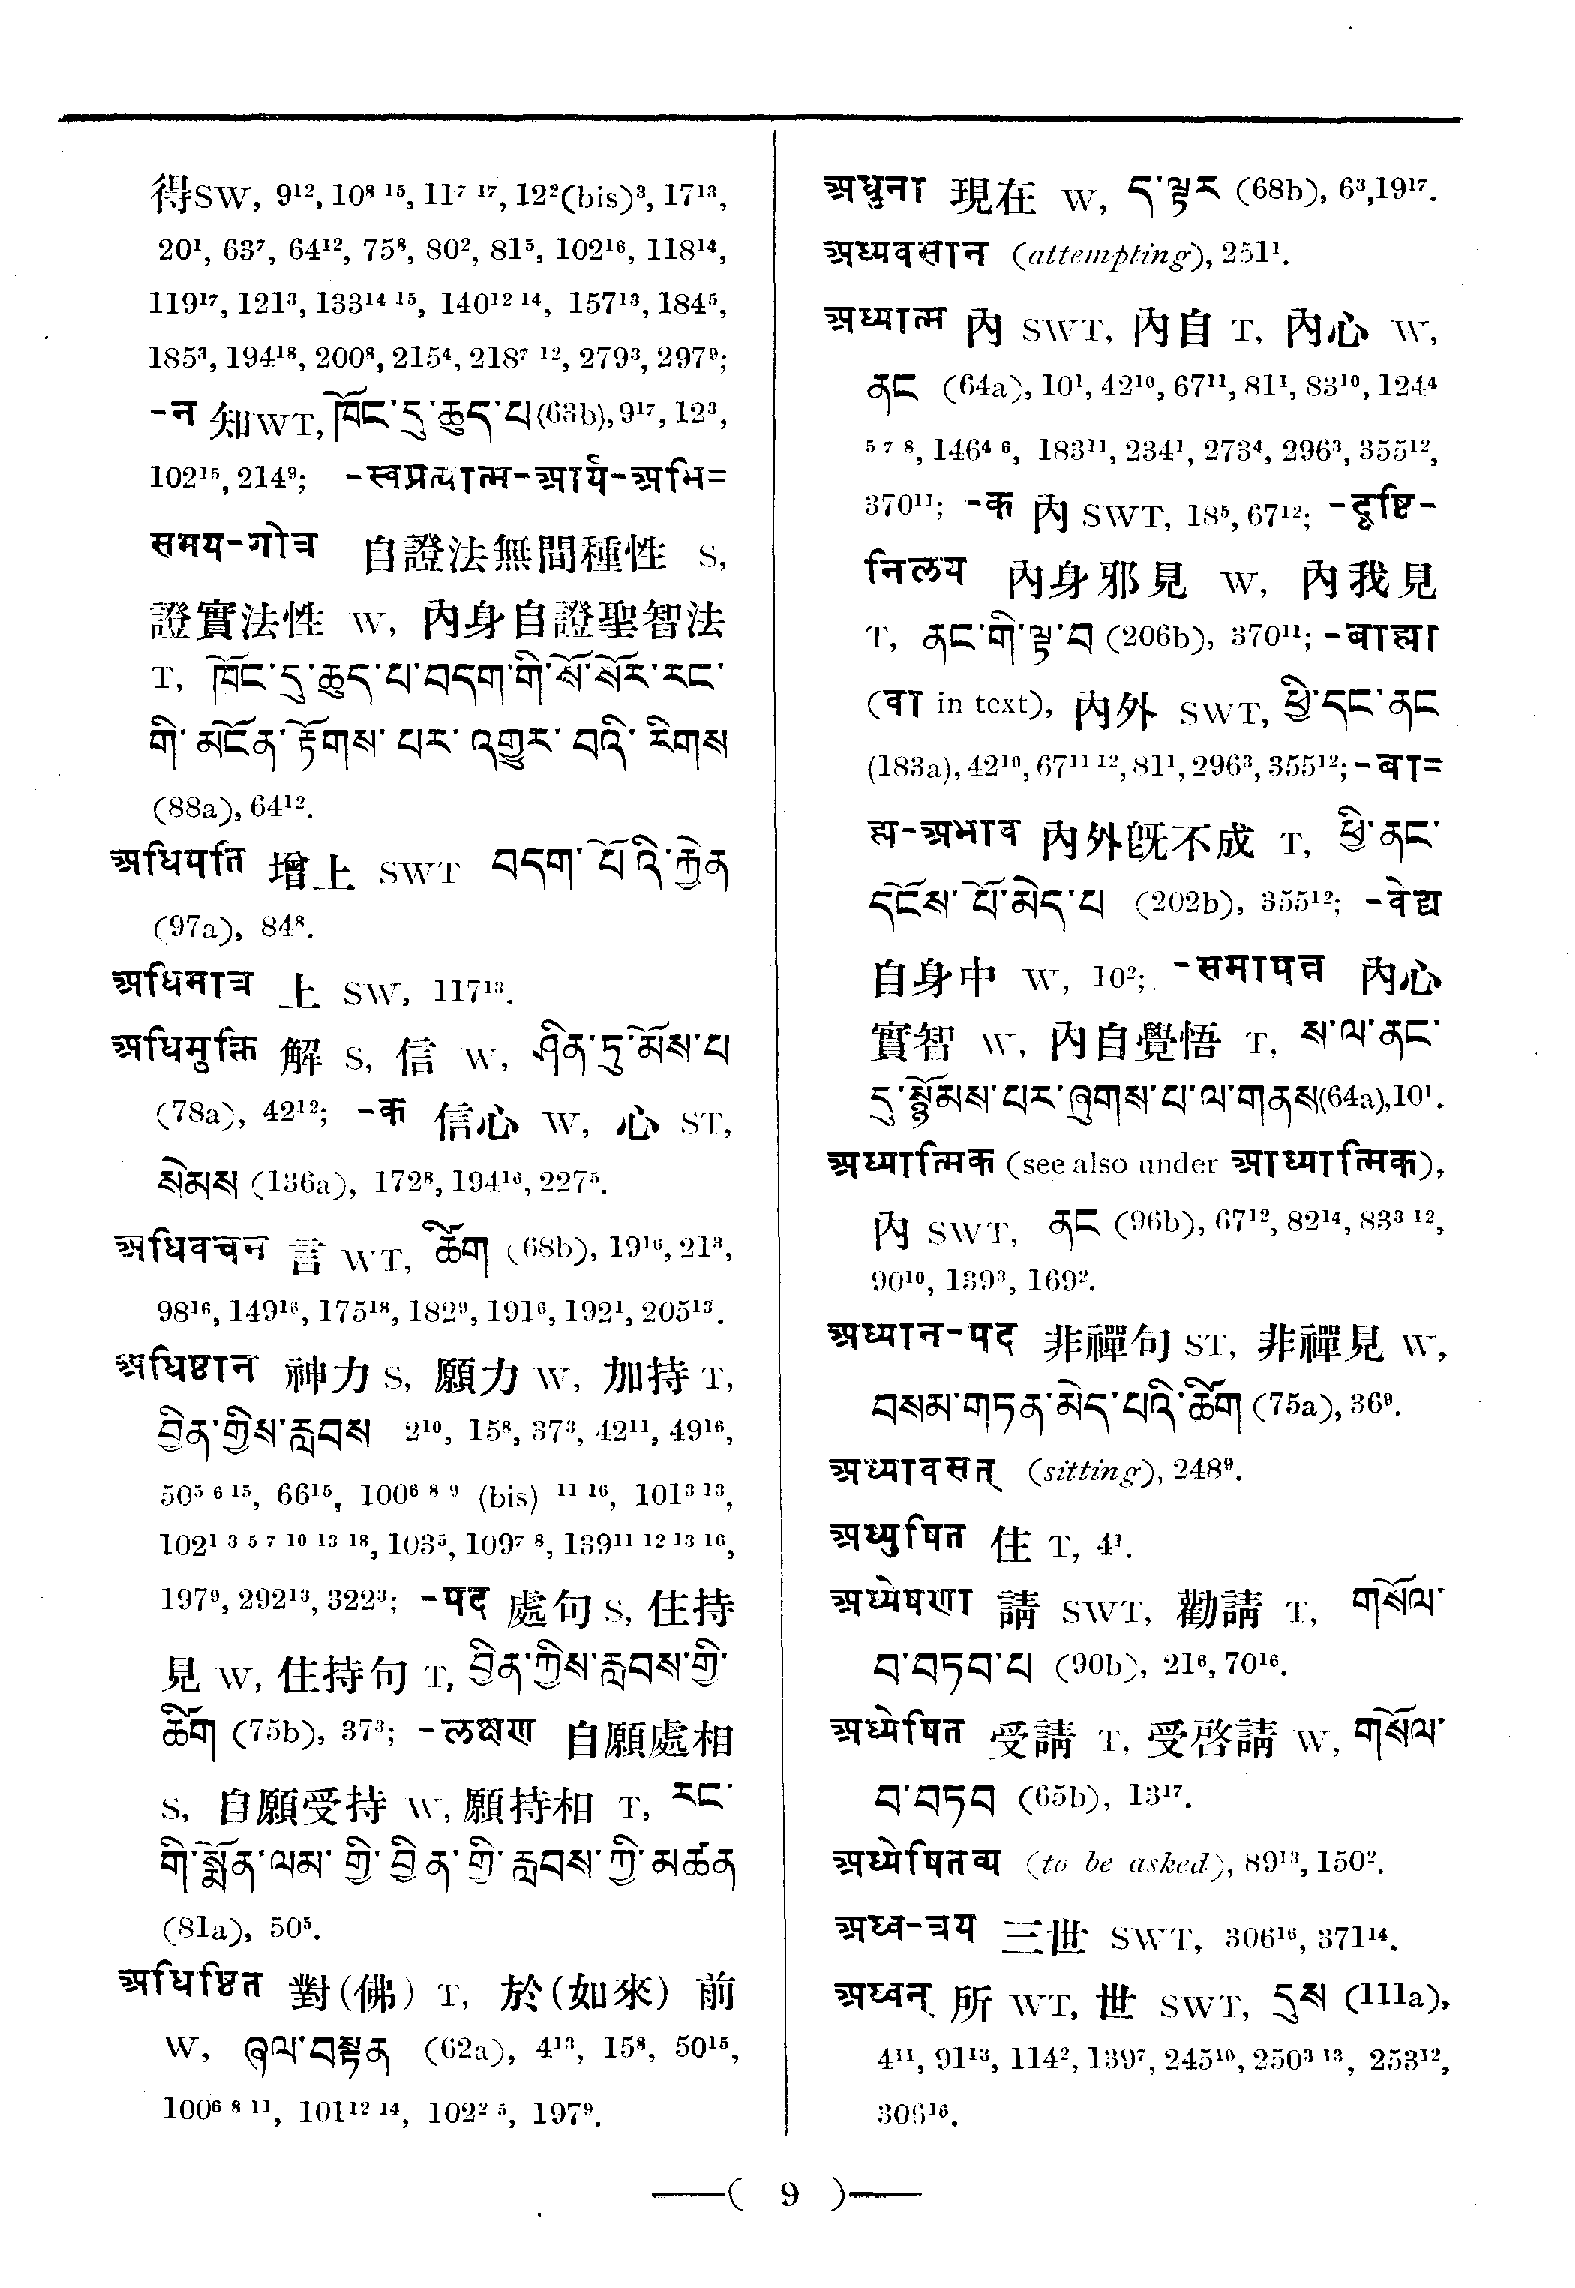 得SW, 9¹², 10⁸ ¹⁵, 11⁷ ¹⁷, 12²(bis)³, 17¹³,
20¹, 63⁷, 64¹², 75⁸, 80², 81⁵, 102¹⁶, 118¹⁴,
119¹⁷, 121³, 133¹⁴ ¹⁵, 140¹² ¹⁴, 157¹³, 184⁵,
185³, 194¹⁸, 200⁸, 215⁴, 218⁷ ¹², 279³, 297⁹;
-न 知WT, ཁོང་དུ་ཆུད་པ (63b), 9¹⁷, 12³,
102¹⁵, 214⁹; -स्वप्रत्यात्म-आर्य-अभि=
समय-गोत्र 自證法無間種性 S,
證實法性 W, 內身自證聖智法
T, ཁོང་དུ་ཆུད་པ་བདག་གི་སོ་སོར་རང་
གི་ མངོན་ རྟོགས་ པར་ འགྱུར་ བའི་ རིགས
(88a), 64¹².
अधिपति 增上 SWT བདག་ པོ་འི་རྐྱེན
(97a), 84⁸.
अधिमात्र 上 SW, 117¹³.
अधिमुक्ति 解 S, 信 W, ཤིན་ཏུ་མོས་པ
(78a), 42¹²; -क 信心 W, 心 ST,
སེམས (136a), 172⁸, 194¹⁶, 227⁵.
अधिवचन 言 WT, ཚིག (68b), 19¹⁶, 21³,
98¹⁶, 149¹⁶, 175¹⁸, 182⁹, 191⁶, 192¹, 205¹³.
अधिष्ठान 神力 S, 願力 W, 加持 T,
བྱིན་གྱིས་རླབས 2¹⁰, 15⁸, 37³, 42¹¹, 49¹⁶,
50⁵ ⁶ ¹⁵, 66¹⁵, 100⁶ ⁸ ⁹ (bis) ¹¹ ¹⁶, 101³ ¹³,
102¹ ³ ⁵ ⁷ ¹⁰ ¹³ ¹⁸, 103⁵, 109⁷ ⁸, 139¹¹ ¹² ¹³ ¹⁶,
197⁹, 292¹³, 322³; -पद 處句 S, 住持
見 W, 住持句 T, བྱིན་ཀྱིས་རླབས་གྱི་
ཚིག (75b), 37³; -लक्षण 自願處相
S, 自願受持 W, 願持相 T, རང་
གི་སྨོན་ལམ་ གྱི་ བྱིན་ གྱི་ རླབས་ཀྱི་མཚན
(81a), 50⁵.
अधिष्ठित 對(佛) T, 於(如來) 前
W, ཞལ་བསྟན (62a), 4¹³, 15⁸, 50¹⁵,
100⁶ ⁸ ¹¹, 101¹² ¹⁴, 102² ⁵, 197⁹.
अधुना 現在 W, ད་ལྟར (68b), 6³,19¹⁷.
अध्यवसान (attempting), 251¹.
अध्यात्म 內 SWT, 內自 T, 內心 W,
ནང (64a), 10¹, 42¹⁰, 67¹¹, 81¹, 83¹⁰, 124⁴
⁵ ⁷ ⁸, 146⁴ ⁶, 183¹¹, 234¹, 273⁴, 296³, 355¹²,
370¹¹; -क 內 SWT, 18⁵, 67¹²; -दृष्टि-
निलय 內身邪見 W, 內我見
T, ནང་གི་ལྟ་བ (206b), 370¹¹; -बाह्या
(वा in text), 內外 SWT, ཕྱི་དང་ནང
(183a), 42¹⁰, 67¹¹ ¹², 81¹, 296³, 355¹²; -बा=
ह्य-अभाव 內外旣不成 T, ཕྱི་ནང་
དངོས་ པོ་མེད་པ (202b), 355¹²; -वेद्य
自身中 W, 10²; -समापन्न 內心
實智 W, 內自覺悟 T, ས་ལ་ནང་
དུ་སྙོམས་པར་ཞུགས་པ་ལ་གནས(64a),10¹.
अध्यात्मिक (see also under आध्यात्मिक),
內 SWT, ནང (96b), 67¹², 82¹⁴, 83³ ¹²,
90¹⁰, 139³, 169².
अध्यान-पद 非禪句 ST, 非禪見 W,
བསམ་གཏན་མེད་པའི་ཚིག (75a), 36⁹.
अध्यावसत् (sitting), 248⁹.
अध्युषित 住 T, 4¹.
अध्येषणा 請 SWT, 勸請 T, གསོལ་
བ་བཏབ་པ (90b), 21⁶, 70¹⁶.
अध्येषित 受請 T, 受啓請 W, གསོལ་
བ་བཏབ (65b), 13¹⁷.
अध्येषितव्य (to be asked), 89¹³, 150².
अध्व-त्रय 三世 SWT, 306¹⁶, 371¹⁴.
अध्वन् 所 WT, 世 SWT, དུས (111a),
4¹¹, 91¹³, 114², 139⁷, 245¹⁰, 250³ ¹³, 253¹²,
306¹⁶.
—( 9 )—